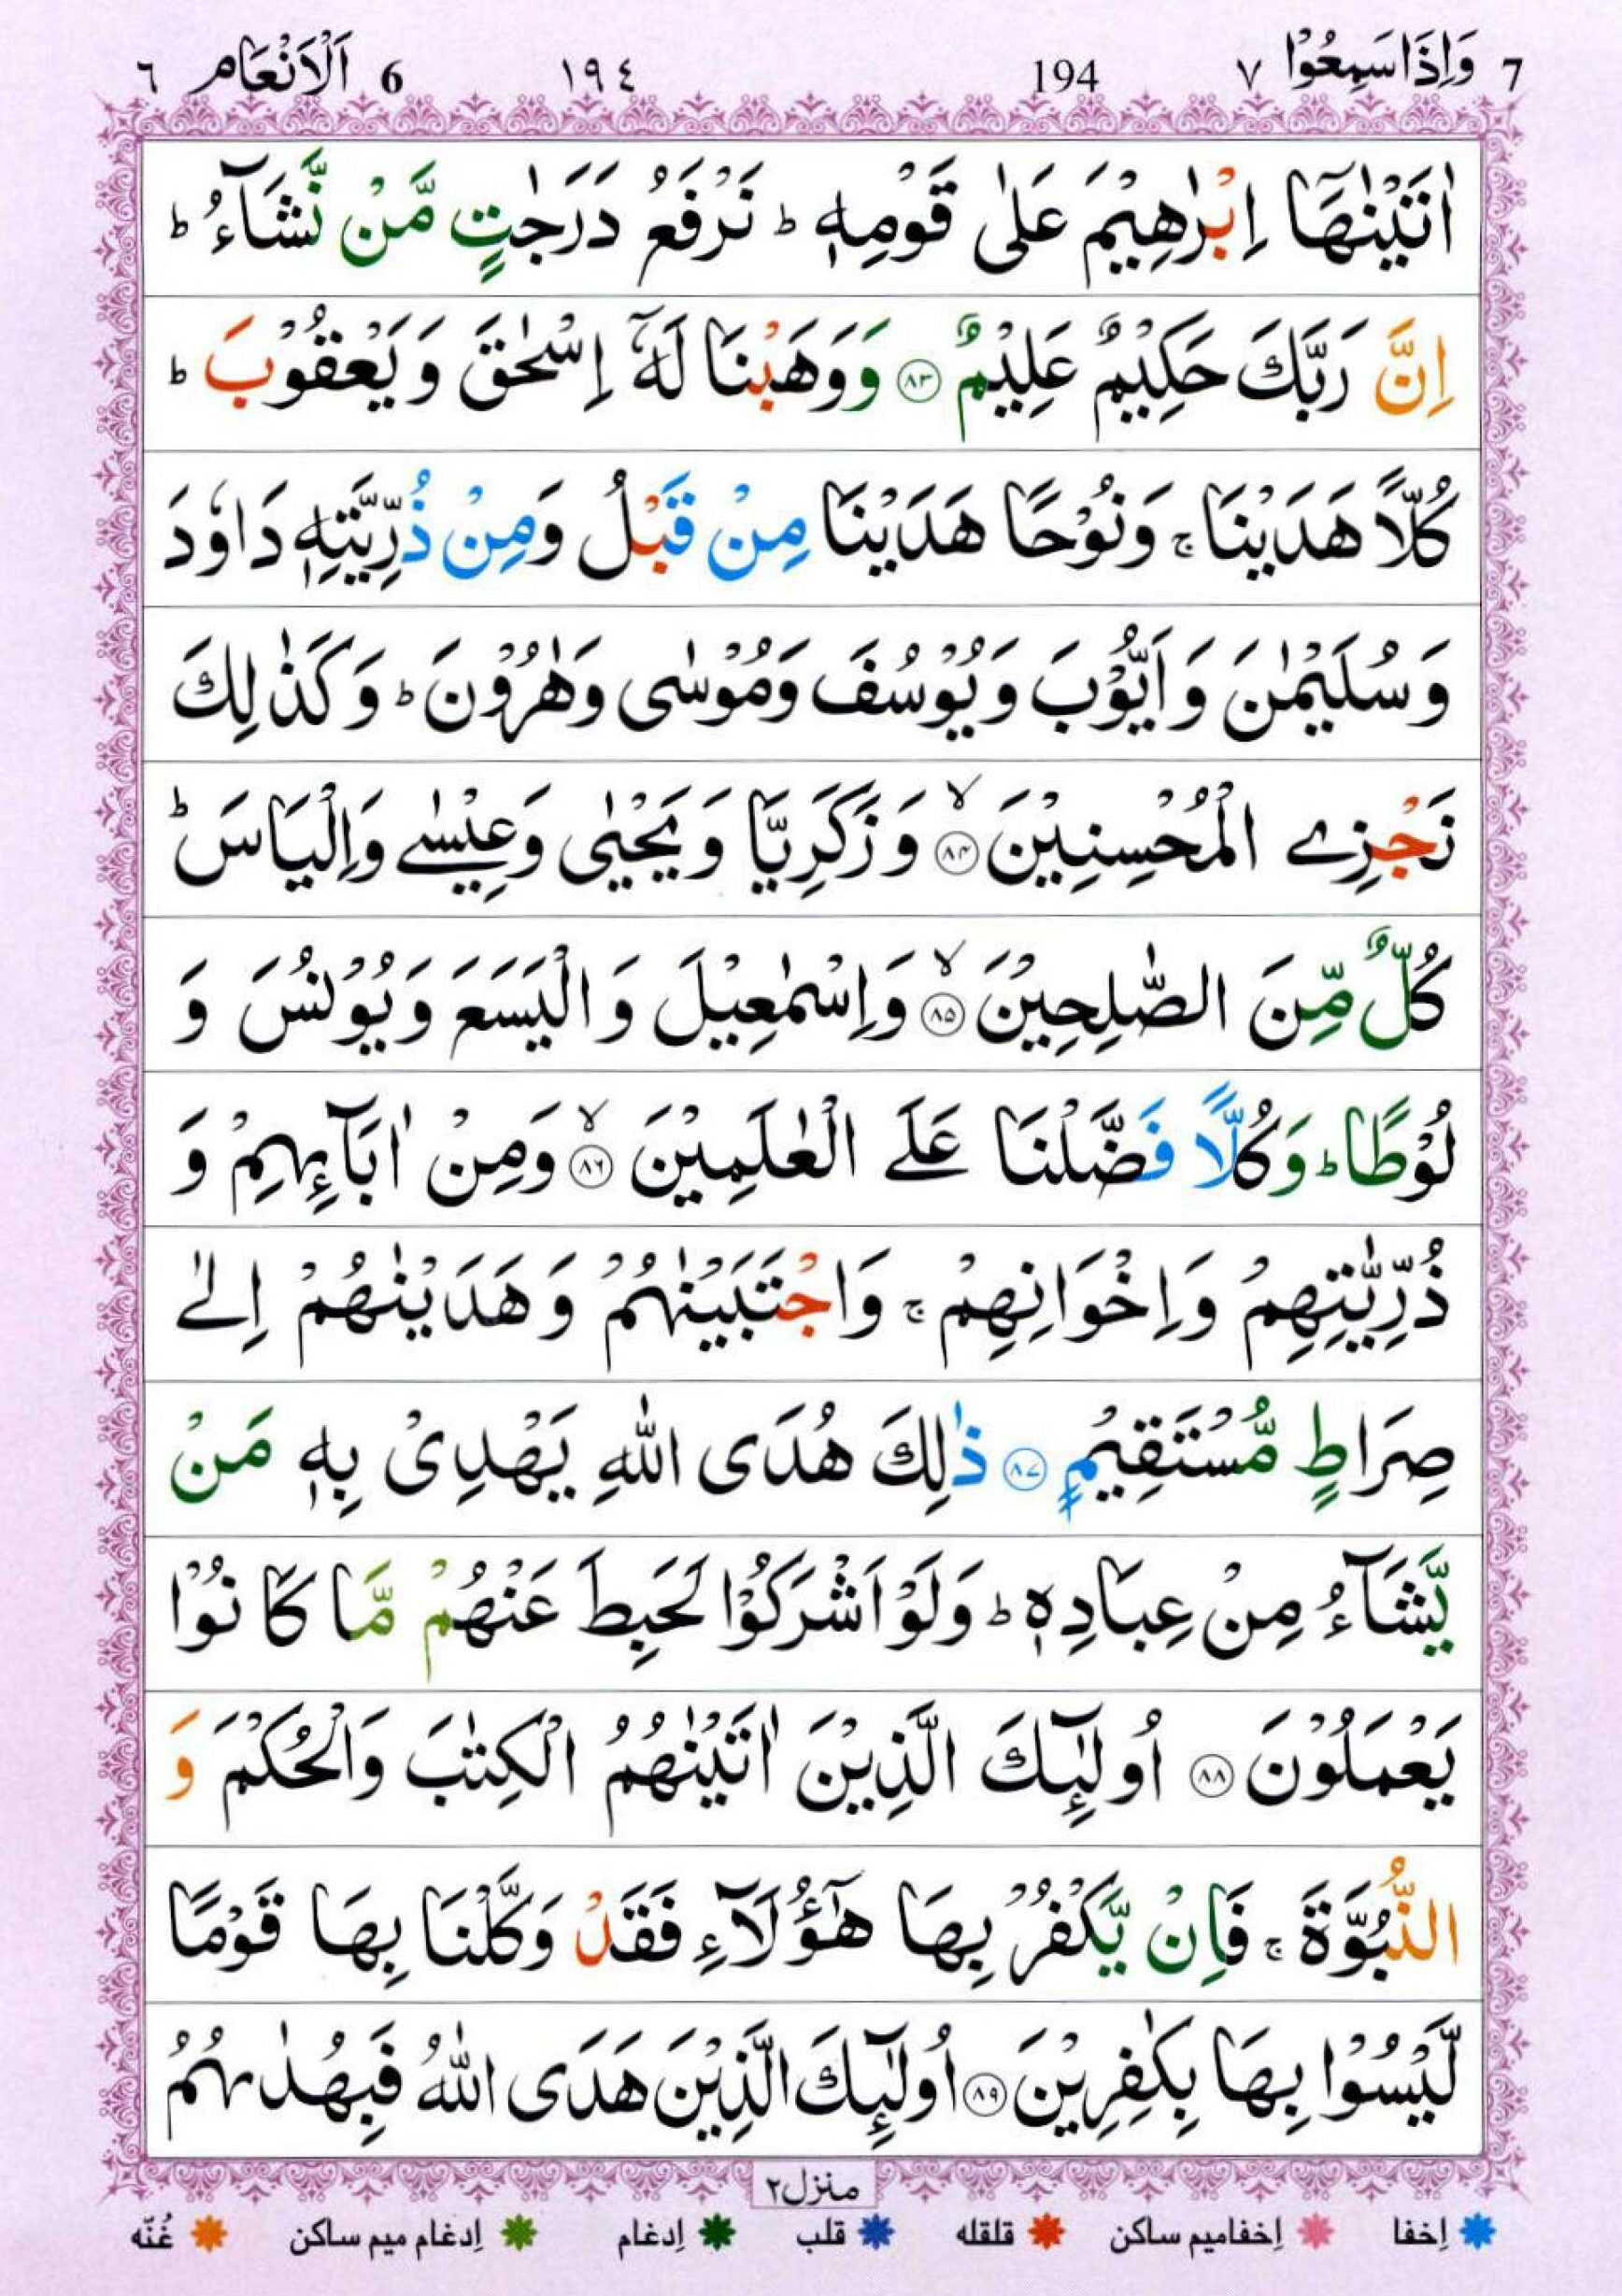 7 وَاِذَا سَمِعُوۡا ٧ 194 ١٩٤ 6 اَلۡاَنۡعَام ٦
اٰتَيۡنٰهَاۤ اِبۡرٰهِيۡمَ عَلٰى قَوۡمِهٖ ؕ نَرۡفَعُ دَرَجٰتٍ مَّنۡ نَّشَآءُ ؕ
اِنَّ رَبَّكَ حَكِيۡمٌ عَلِيۡمٌ ﴿۸۳﴾ وَوَهَبۡنَا لَهٗۤ اِسۡحٰقَ وَيَعۡقُوۡبَ ؕ
كُلًّا هَدَيۡنَا ۚ وَنُوۡحًا هَدَيۡنَا مِنۡ قَبۡلُ وَمِنۡ ذُرِّيَّتِهٖ دَاوٗدَ
وَسُلَيۡمٰنَ وَاَيُّوۡبَ وَيُوۡسُفَ وَمُوۡسٰى وَهٰرُوۡنَ ؕ وَكَذٰلِكَ
نَجۡزِى الۡمُحۡسِنِيۡنَ ۙ﴿۸۴﴾ وَزَكَرِيَّا وَيَحۡيٰى وَعِيۡسٰى وَاِلۡيَاسَ ؕ
كُلٌّ مِّنَ الصّٰلِحِيۡنَ ۙ﴿۸۵﴾ وَاِسۡمٰعِيۡلَ وَالۡيَسَعَ وَيُوۡنُسَ وَ
لُوۡطًا ؕ وَكُلًّا فَضَّلۡنَا عَلَى الۡعٰلَمِيۡنَ ۙ﴿۸۶﴾ وَمِنۡ اٰبَآئِهِمۡ وَ
ذُرِّيّٰتِهِمۡ وَاِخۡوَانِهِمۡ ۚ وَاجۡتَبَيۡنٰهُمۡ وَهَدَيۡنٰهُمۡ اِلٰى
صِرَاطٍ مُّسۡتَقِيۡمٍ ﴿۸۷﴾ ذٰلِكَ هُدَى اللّٰهِ يَهۡدِىۡ بِهٖ مَنۡ
يَّشَآءُ مِنۡ عِبَادِهٖ ؕ وَلَوۡ اَشۡرَكُوۡا لَحَبِطَ عَنۡهُمۡ مَّا كَانُوۡا
يَعۡمَلُوۡنَ ﴿۸۸﴾ اُولٰٓئِكَ الَّذِيۡنَ اٰتَيۡنٰهُمُ الۡكِتٰبَ وَالۡحُكۡمَ وَ
النُّبُوَّةَ ۚ فَاِنۡ يَّكۡفُرۡ بِهَا هٰٓؤُلَآءِ فَقَدۡ وَكَّلۡنَا بِهَا قَوۡمًا
لَّيۡسُوۡا بِهَا بِكٰفِرِيۡنَ ﴿۸۹﴾ اُولٰٓئِكَ الَّذِيۡنَ هَدَى اللّٰهُ فَبِهُدٰٮهُمُ
منزل۲
اِخفا اِخفامیم ساکن قلقله قلب اِدغام اِدغام میم ساکن غُنّه